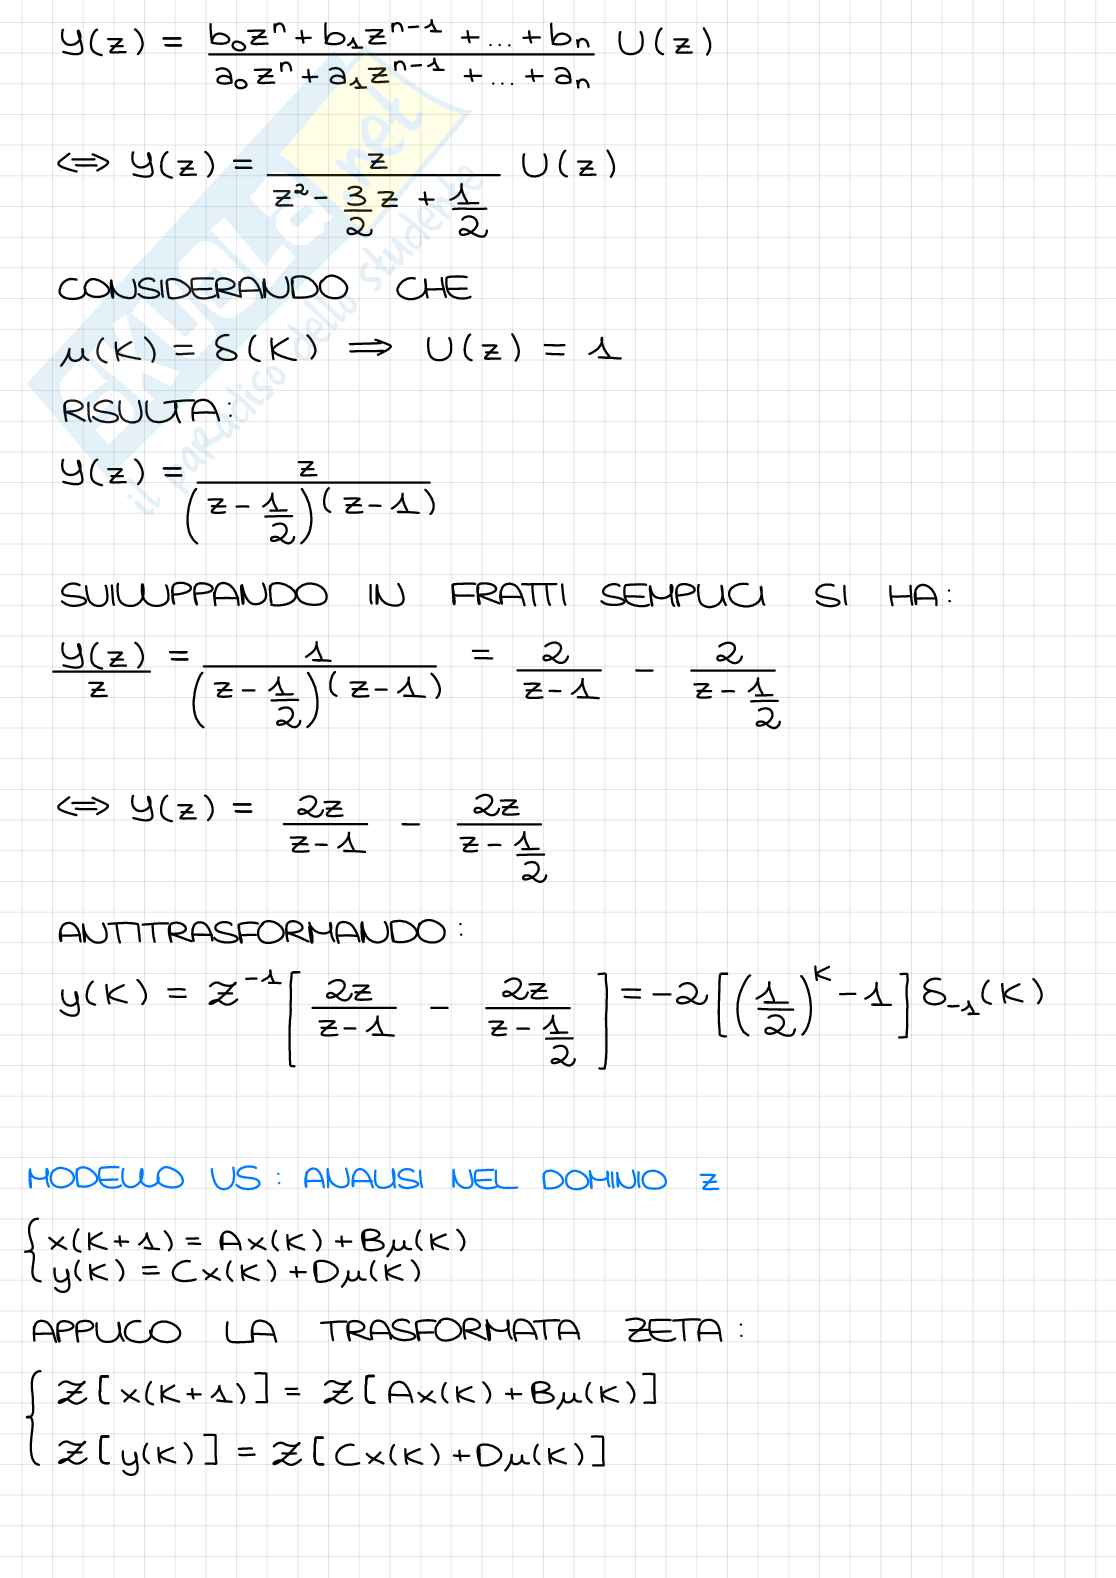 Y(z) = (b₀zⁿ + b₁zⁿ⁻¹ + ... + bₙ) / (a₀zⁿ + a₁zⁿ⁻¹ + ... + aₙ) U(z)
⟺ Y(z) = z / (z² - 3/2 z + 1/2) U(z)
CONSIDERANDO CHE
μ(K) = δ(K) ⟹ U(z) = 1
RISULTA:
Y(z) = z / ((z - 1/2)(z - 1))
SVILUPPANDO IN FRATTI SEMPLICI SI HA:
Y(z)/z = 1 / ((z - 1/2)(z - 1)) = 2/(z - 1) - 2/(z - 1/2)
⟺ Y(z) = 2z/(z - 1) - 2z/(z - 1/2)
ANTITRASFORMANDO:
y(K) = Z⁻¹[2z/(z - 1) - 2z/(z - 1/2)] = -2[(1/2)ᴷ - 1] δ₋₁(K)
MODELLO US: ANALISI NEL DOMINIO z
{ x(K+1) = Ax(K) + Bμ(K)
y(K) = Cx(K) + Dμ(K)
APPLICO LA TRASFORMATA ZETA:
{ Z[x(K+1)] = Z[Ax(K) + Bμ(K)]
Z[y(K)] = Z[Cx(K) + Dμ(K)]
SKUOLA.net
il paradiso dello studente